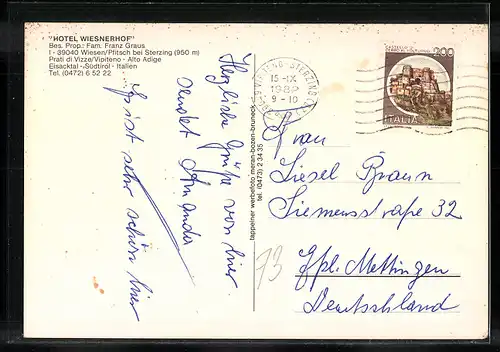 "HOTEL WIESNERHOF"
Bes. Prop.: Fam. Franz Graus
I - 39040 Wiesen/Pfitsch bei Sterzing (950 m)
Prati di Vizze/Vipiteno - Alto Adige
Eisacktal -Südtirol - Italien
Tel. (0472) 6 52 22
Herzliche Grüße von hier
sendet Amanda
Es ist sehr schön hier
tappeiner werbefoto meran-bozen-bruneck
tel. (0473) 2 34 35
VIPITENO - STERZING
15-IX
9-10
200
ITALIA
Frau
Liesel Braun
Siemensstraße 32
73
Mettingen
Deutschland